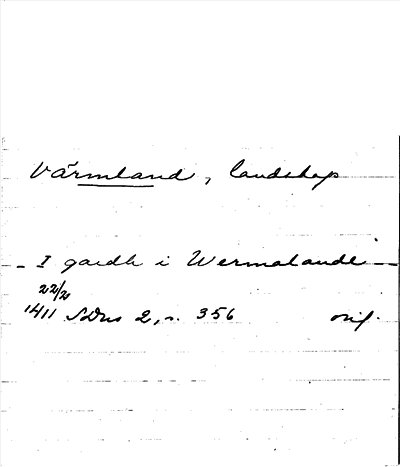 Värmland, landskap
- I gardh i Wermalande -
22/2
1411 SDns 2, s. 356 orig.